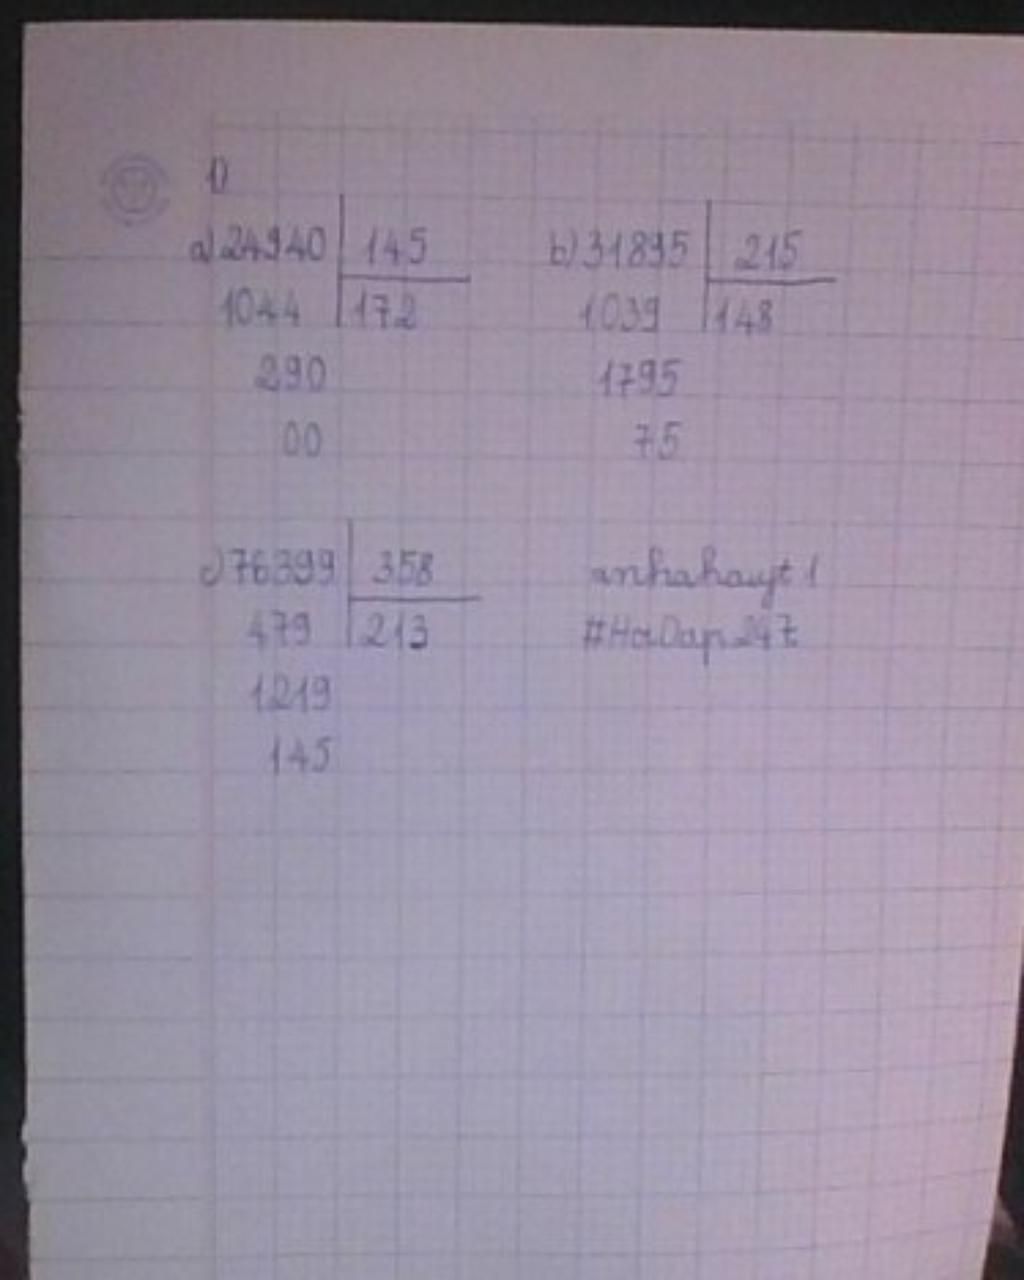 1)
a) 24940 145
1044 172
290
00
b) 31895 215
1039 148
1795
75
c) 76399 358
479 213
1219
145
anhahauyt1
#HoiDap247